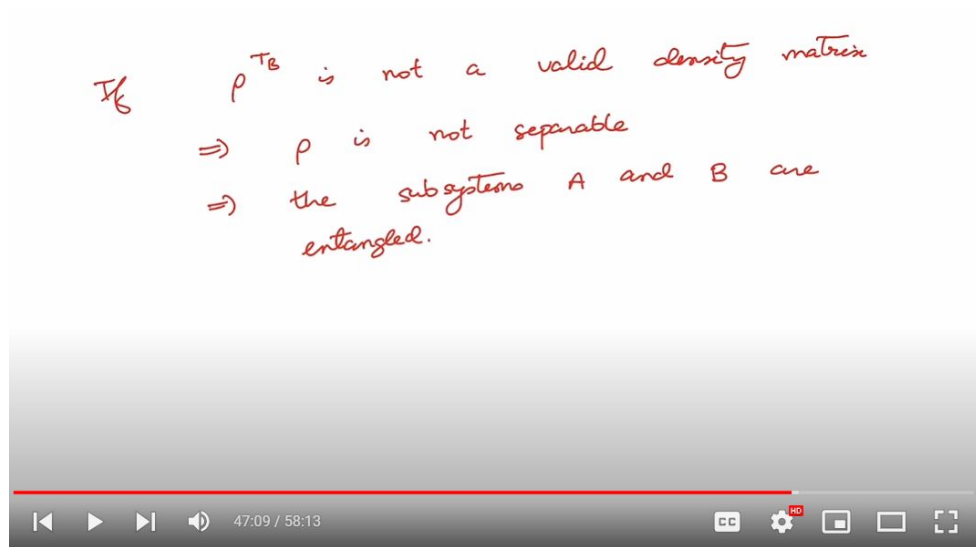 If ρ^{T_B} is not a valid density matrix
⇒ ρ is not separable
⇒ the subsystems A and B are
entangled.
47:09 / 58:13 CC HD